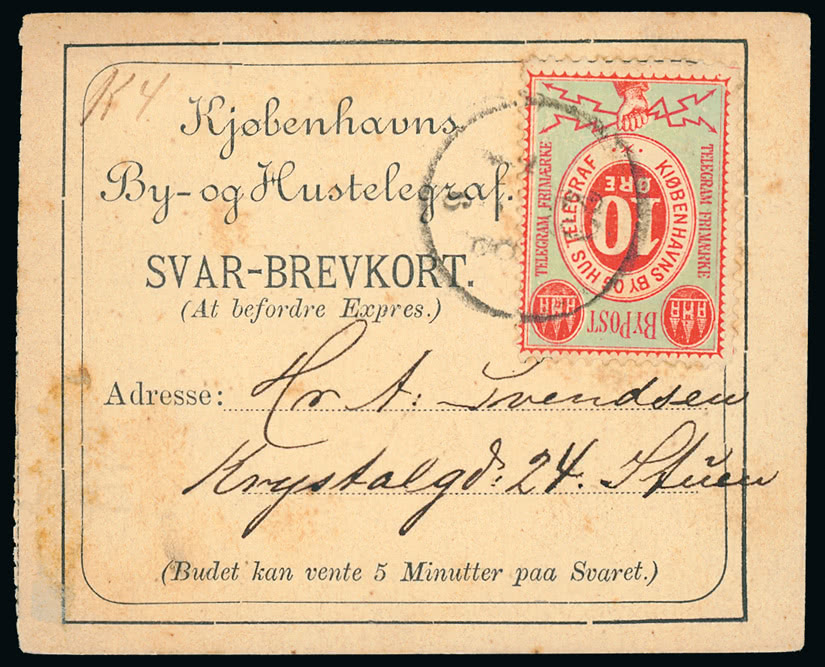 K 4
Kjøbenhavns
By- og Hustelegraf.
SVAR-BREVKORT.
(At befordre Expres.)
Adresse: Hr A: Svendsen
Krystalgd: 24. Stuen
(Budet kan vente 5 Minutter paa Svaret.)
KJØBENHAVNS BY OG HUS TÆLEGRAF
10
ØRE
TELEGRAM FRIMÆRKE
TELEGRAM FRIMÆRKE
BYPOST